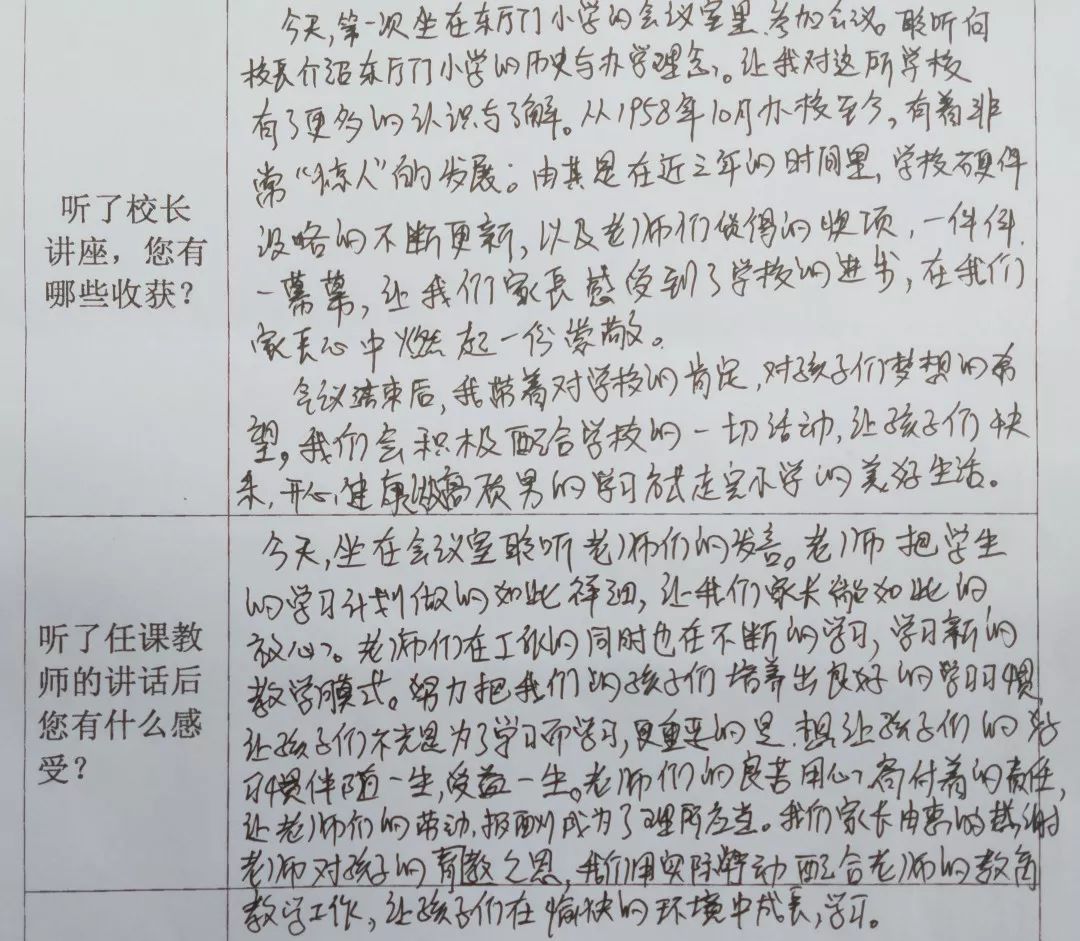 听了校长
讲座，您有
哪些收获？
今天，第一次坐在东厅门小学的会议室里参加会议。聆听何
校长介绍东厅门小学的历史与办学理念，。让我对这所学校
有了更多的认识与了解。从1958年10月办校至今，有着非
常“惊人”的发展；由其是在近三年的时间里，学校硬件
设略的不断更新，以及老师们获得的奖项，一件件.
一幕幕，让我们家长感受到了学校的进步，在我们
家长心中燃起一份崇敬。
会议结束后，我带着对学校的肯定，对孩子们梦想的希
望。我们会积极配合学校的一切活动，让孩子们快
乐，开心，健康的学习方式走完小学的美好生活。
听了任课教
师的讲话后
您有什么感
受？
今天，坐在会议室聆听老师们的发言。老师把学生
的学习计划做的如此祥细，让我们家长能如此的
放心。老师们在工作的同时也在不断的学习，学习新的
教学模式。努力把我们的孩子们培养出良好的学习习惯，
让孩子们不光是为了学习而学习，更重要的是.想让孩子们的好
习惯伴随一生，受益一生。老师们的良苦用心寄付着的责任，
让老师们的劳动，报酬成为了理所应当。我们家长由衷的感谢
老师对孩子的育教之恩，我们用实际行动配合老师的教育
教学工作，让孩子们在愉快的环境中成长，学习。